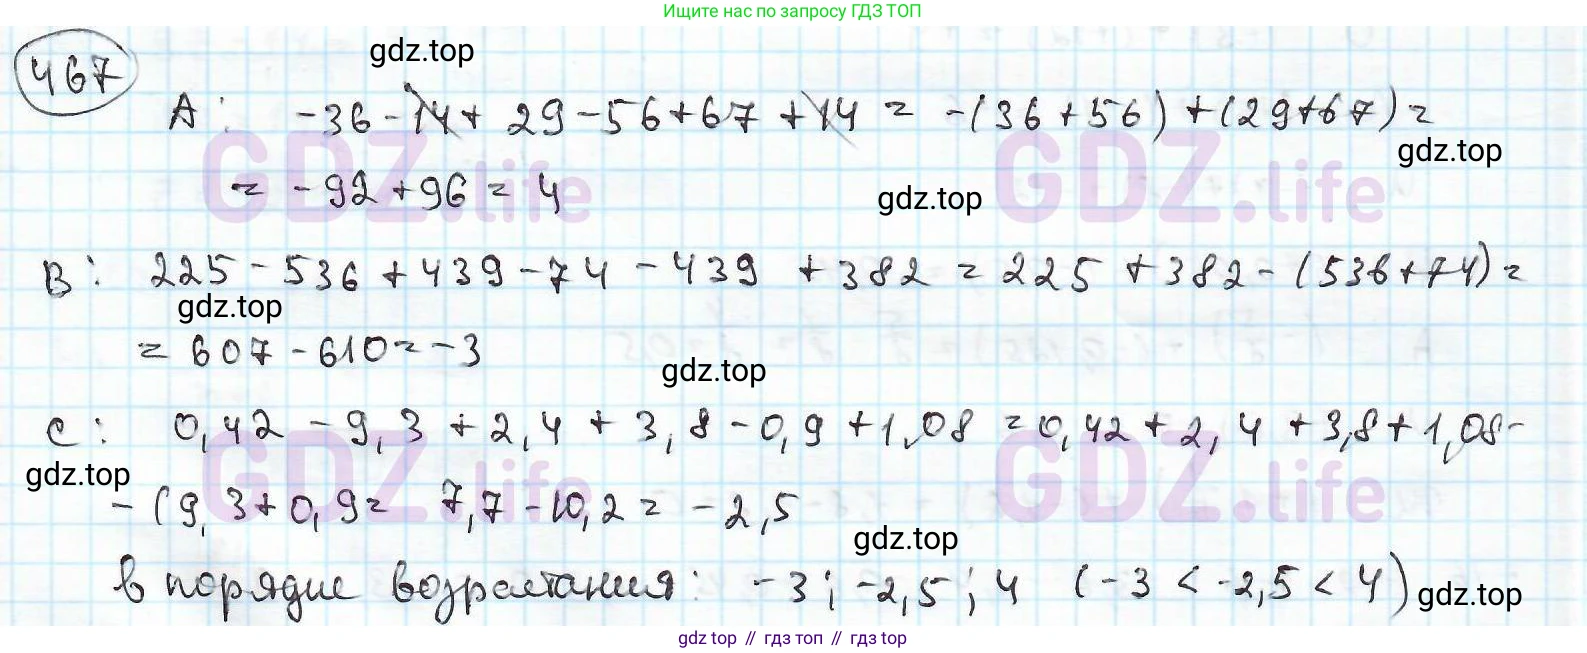 Ищите нас по запросу ГДЗ ТОП
467
gdz.top
A: -36-14+ 29-56+67 +14 = -(36+56)+(29+67)=
gdz.top
GDZ.life
GDZ.life
= -92+96= 4
gdz.top
B: 225-536+439-74-439 +382 = 225+382-(536+74)=
gdz.top
= 607-610=-3
gdz.top
C: 0,42 - 9,3 + 2,4 + 3,8-0,9+1,08 =0,42+2,4+3,8+1,08-
gdz.top
GDZ.life
GDZ.life
-(9,3+0,9= 7,7-10,2= -2,5
gdz.top
в порядке возрастания: -3; -2,5; 4 (-3 < -2,5 < 4)
gdz.top
gdz top // гдз топ // гдз top